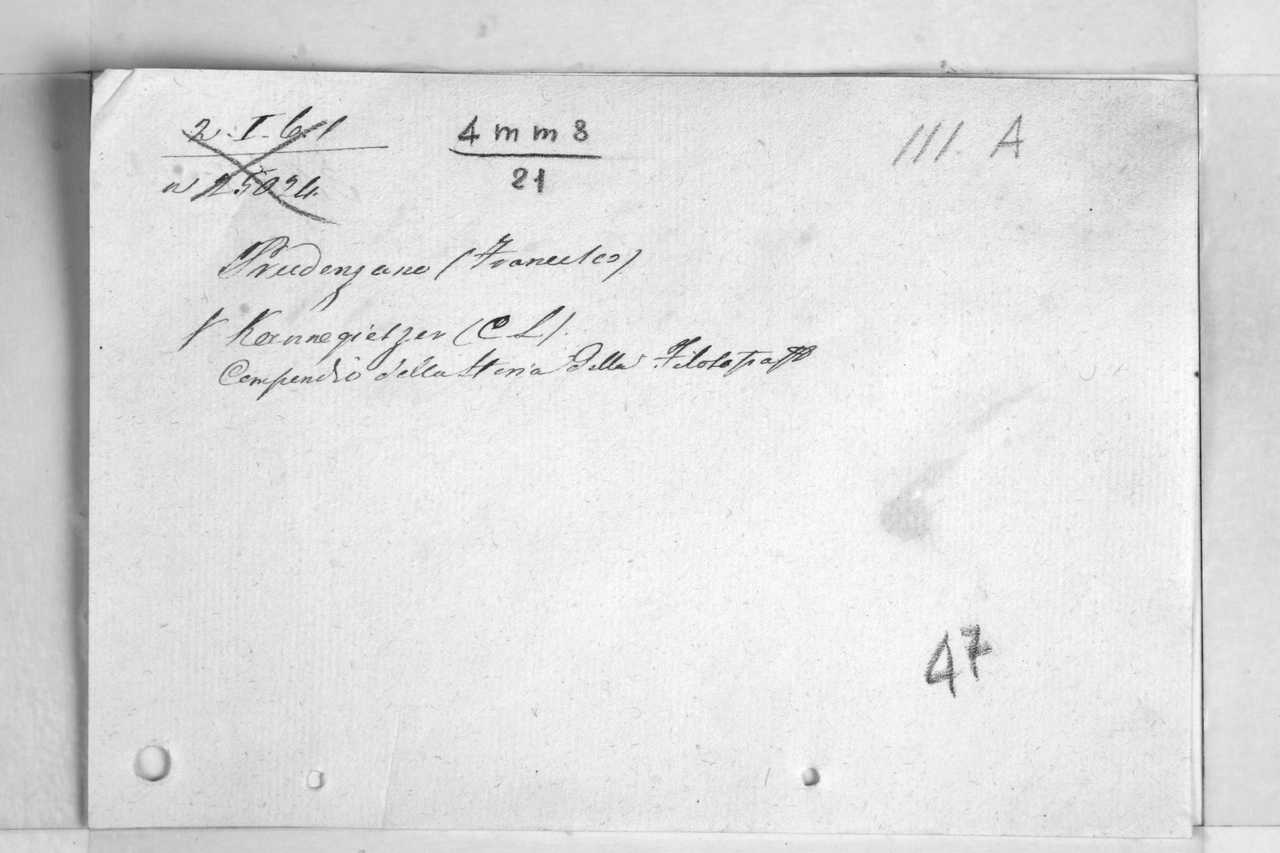 2. I. 6.11
4 m m 8
III. A
21
n 25094
Prudenzano (Francesco)
V Kannegietzer (C L).
Compendio della Storia della Filosofia
47